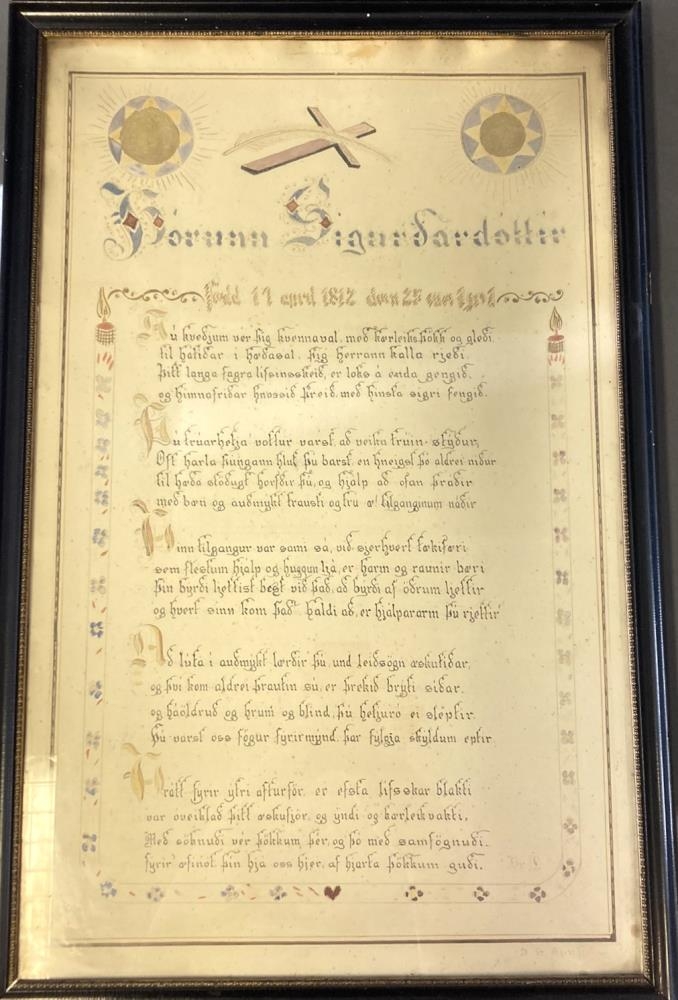 Þórunn Sigurðardóttir
Fædd 17 apríl 1812 dáin
Nú kveðjum ver þig kvennaval, með kærleiks þökk og gleði,
til hátíðar í hæðasal, þig herrann kalla rjeði.
Þitt langa fagra lífsinsskeið, er loks á enda gengið,
og himnafriðar hnossið þreið, með hinsta sigri fengið.
Þú trúarhetja vottur varst, að veika trúin styður,
Oft harla þungann hlut þú barst, en hneigst þó aldrei niður
til hæða stöðugt horfðir þú, og hjálp að ofan þráðir
með bæn og auðmýkt trausti og trú æ tilganginum náðir
Þinn tilgangur var sami sá, við sjerhvert tækifæri
sem flestum hjálp og huggun ljá, er harm og raunir bæri
Þín byrði ljettist best við það, að byrði af öðrum ljettir
og hvert sinn kom það haldi að, er hjálpararm þú rjettir
Að lúta í auðmýkt lærðir þú, und leiðsögn æskutíðar,
og því kom aldrei þrautin sú, er þrekið bryti síðar,
og háöldruð og hrum og blind, þú hetjuró ei sleptir
Þú varst oss fögur fyrirmynd, þar fylgja skyldum eptir.
Þrátt fyrir ytri afturför, er efsta lífsskar blakti
var óveiklað þitt æskufjör, og yndi og kærleik vakti,
Með söknuði vér þökkum þér, og þó með samfögnuði,
fyrir æfinót þín hjá oss hjer, af hjarta þökkum guði.